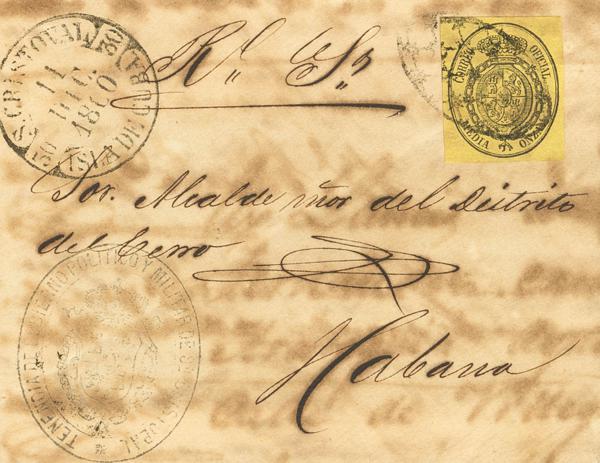 S. CRISTOVAL
11
DIC
1860
ISLA DE CUBA
Rl. Sr.
CORREO OFICIAL
MEDIA ONZA
Sor. Alcalde mor del Distrito
del Cerro
TENENCIA DE GOBIERNO POLITICO Y MILITAR DE SAN CRISTOBAL
Habana